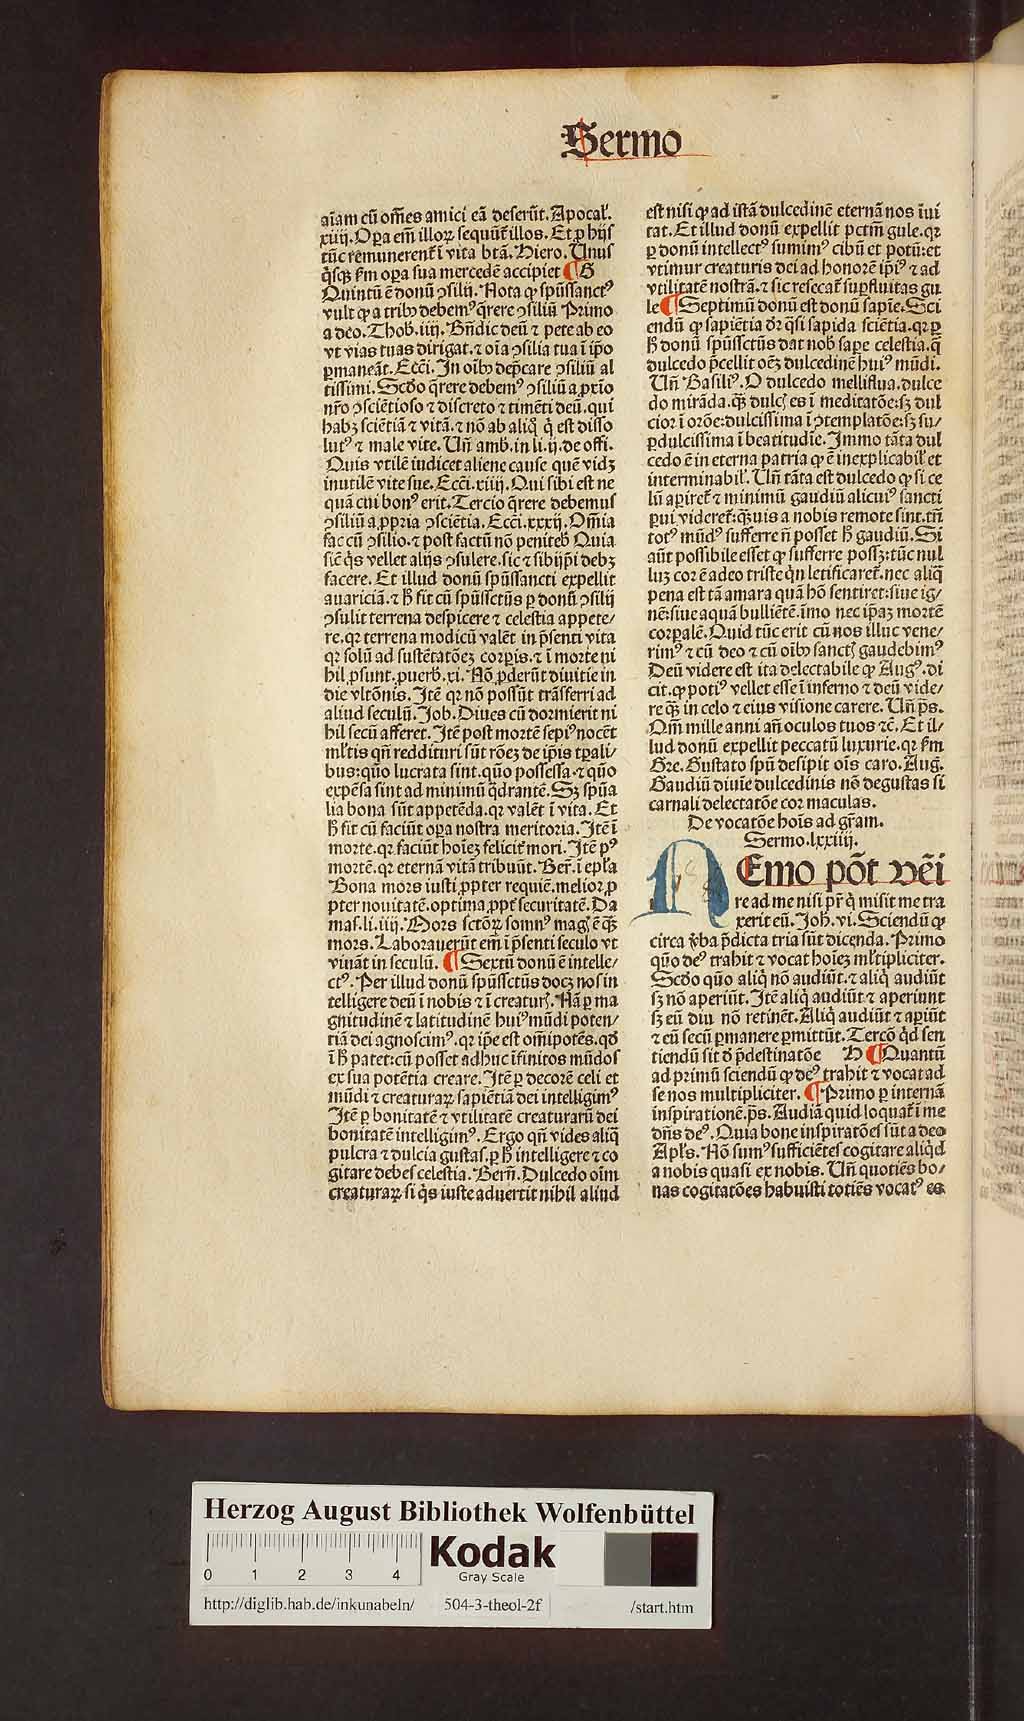 Sermo
aīam cū om̄es amici eā deserūt. Apocal'.
xiiij. Oꝑa em̄ illoꝝ sequūt̄ illos. Et ꝑ hijs
tūc remunerent̄ ī vita btā. Hiero. Unus
q̇sqꝫ ẜm oꝑa sua mercedē accipiet ¶ G
Quintū ē donū ↄsilij. Nota ꝙ spūssanctꝰ
vult ꝙ a tribꝰ debemꝰ q̄rere ↄsiliū Primo
a deo. Thob. iiij. Bn̄dic deū ⁊ pete ab eo
vt vias tuas dirigat. ⁊ oīa ↄsilia tua ī ip̄o
ꝑmaneāt. Ecci. In oībꝰ dep̄care ↄsiliū al
tissimi. Scd̓o q̄rere debemꝰ ↄsiliū a ꝓxīo
nr̄o ↄsciētioso ⁊ discreto ⁊ timēti deū. qui
habꝫ sciētiā ⁊ vitā. ⁊ nō ab aliq̇ q̇ est disso
lutꝰ ⁊ male vite. Un̄ amb. in li. ij. de offi.
Quis vtilē iudicet aliene cause quē vidꝫ
inutilē vite sue. Ecci. xiiij. Qui sibi est ne
quā cui bonꝰ erit. Tercio q̄rere debemus
ↄsiliū a ꝓpria ↄsciētia. Ecci. xxxij. Om̄ia
fac cū ↄsilio. ⁊ post factū nō penitebꝰ Quia
sic̄ q̇s vellet alijs ↄsulere. sic ⁊ sibijp̄i debꝫ
facere. Et illud donū spūssancti expellit
auariciā. ⁊ ħ fit cū spūssctūs ꝑ donū ↄsilij
ↄsulit terrena despicere ⁊ celestia appete/
re. qꝛ terrena modicū valēt in p̄senti vita
qꝛ solū ad sustētatōeꝫ corꝑis. ⁊ ī morte ni
hil ꝓsunt. ꝓuerb. xi. Nō ꝓderūt diuitie in
die vltōnis. Itē qꝛ nō possūt trāsferri ad
aliud seculū. Job. Diues cū dormierit ni
hil secū afferet. Itē post mortē sepiꝰ nocēt
ml'tis qn̄ reddituri sūt rōeꝫ de ip̄is tꝑali/
bus: quō lucrata sint. quō possessa. ⁊ quō
expēsa sint ad minimū q̄drantē. Sꝫ spūa
lia bona sūt appetēda. qꝛ valēt ī vita. Et
ħ fit cū faciūt oꝑa nostra meritoria. Itē ī
morte. qꝛ faciūt hoīeꝫ felicit̄ mori. Itē pꝰ
mortē. qꝛ eternā vitā tribuūt. Ber̄. ī epl'a
Bona mors iusti ꝓpter requiē. melior ꝓ
pter nouitatē. optima ꝓpt̄ securitatē. Da
mas. li. iiij. Mors sctōꝝ somnꝰ magꝭ ē q̄ꝫ
mors. Laborauerūt em̄ ī p̄senti seculo vt
viuāt in seculū. ¶ Sextū donū ē intelle/
ctꝰ. Per illud donū spūssctūs docꝫ nos in
telligere deū ī nobis ⁊ ī creaturꝭ. Nā ꝑ ma
gnitudinē ⁊ latitudinē huiꝰ mūdi poten/
tiā dei agnoscimꝰ. qꝛ ip̄e est om̄ipotēs. qd̓
ī ħ patet: cū posset adhuc īfinitos mūdos
ex sua potētia creare. Itē ꝑ decorē celi et
mūdi ⁊ creaturaꝝ sapiētiā dei intelligimꝰ
Itē ꝑ bonitatē ⁊ vtilitatē creaturarū dei
bonitatē intelligimꝰ. Ergo qn̄ vides aliq̇
pulcra ⁊ dulcia gustas. ꝑ ħ intelligere ⁊ co
gitare debes celestia. Bern̄. Dulcedo oīm
creaturaꝝ si q̇s iuste aduertit nihil aliud
est nisi ꝙ ad istā dulcedinē eternā nos īui
tat. Et illud donū expellit pctm̄ gule. qꝛ
ꝑ donū intellectꝰ sumimꝰ cibū et potū: et
vtimur creaturis dei ad honorē ip̄iꝰ ⁊ ad
vtilitatē nostrā. ⁊ sic resecat̄ suꝑfluitas gu
le ¶ Septimū donū est donū sapīe. Sci
endū ꝙ sapiētia dr̄ q̄si sapida sciētia. qꝛ ꝑ
ħ donū spūssctūs dat nob̓ saꝑe celestia. q̄
dulcedo p̄cellit oēꝫ dulcedinē huiꝰ mūdi.
Un̄ Basiliꝰ. O dulcedo melliflua. dulce
do mirāda. q̄ꝫ dulcꝭ es ī meditatōe: sꝫ dul
cioꝛ ī orōe: dulcissima ī ↄtemplatōe: sꝫ su/
ꝑdulcissima ī beatitudīe. Immo tāta dul
cedo ē in eterna patria ꝙ ē inexplicabil' et
interminabil'. Un̄ tāta est dulcedo ꝙ si ce
lū aꝑiret̄ ⁊ minimū gaudiū alicuiꝰ sancti
ꝑui videret̄: q̄ꝫuis a nobis remote sint. tn̄
totꝰ mūdꝰ sufferre n̄ posset ħ gaudiū. Si
aūt possibile esset ꝙ sufferre possꝫ: tūc nul
luꝫ cor ē adeo triste q̇n letificaret̄. nec aliq̄
pena est tā amara quā hō sentiret: siue ig/
nē: siue aquā bulliētē. īmo nec ip̄aꝫ mortē
corꝑalē. Quid tūc erit cū nos illuc vene/
rimꝰ ⁊ cū deo ⁊ cū oībꝰ sanctꝭ gaudebimꝰ
Deū videre est ita delectabile ꝙ Augꝰ. di
cit. ꝙ potiꝰ vellet esse ī inferno ⁊ deū vide/
re q̄ꝫ in celo ⁊ eius visione carere. Un̄ p̄s.
Om̄ mille anni an̄ oculos tuos ⁊c̄. Et il/
lud donū expellit peccatū luxurie. qꝛ ẜm
Gre. Gustato spū desipit oīs caro. Auḡ.
Gaudiū diuīe dulcedinis nō degustas si
carnali delectatōe cor maculas.
De vocatōe hoīs ad gr̄am.
Sermo. lxxiiij.
NEmo pōt vēi
re ad me nisi pr̄ q̇ misit me tra
xerit eū. Joh. vi. Sciendū ꝙ
circa v̓ba p̄dicta tria sūt dicenda. Primo
quō deꝰ trahit ⁊ vocat hoīeꝫ ml'tipliciter.
Scd̓o quō aliq̇ nō audiūt. ⁊ aliq̇ audiūt
sꝫ nō aperiūt. Itē aliq̇ audiūt ⁊ aperiunt
sꝫ eū diu nō retinēt. Aliq̇ audiūt ⁊ aꝑiūt
⁊ eū secū ꝑmanere ꝑmittūt. Tercō q̇d sen
tiendū sit d̓ p̄destinatōe H ¶ Quantū
ad primū sciendū ꝙ deꝰ trahit ⁊ vocat ad
se nos multipliciter. ¶ Primo ꝑ internā
inspirationē. p̄s. Audiā quid loquat̄ ī me
dn̄s deꝰ. Quia bone inspiratōes sūt a deo
Apl's. Nō sumꝰ sufficiētes cogitare aliq̇d
a nobis quasi ex nobis. Un̄ quotiēs bo/
nas cogitatōes habuisti totiēs vocatꝰ es
Herzog August Bibliothek Wolfenbüttel
0 1 2 3 4
Kodak
Gray Scale
http://diglib.hab.de/inkunabeln/ 504-3-theol-2f /start.htm